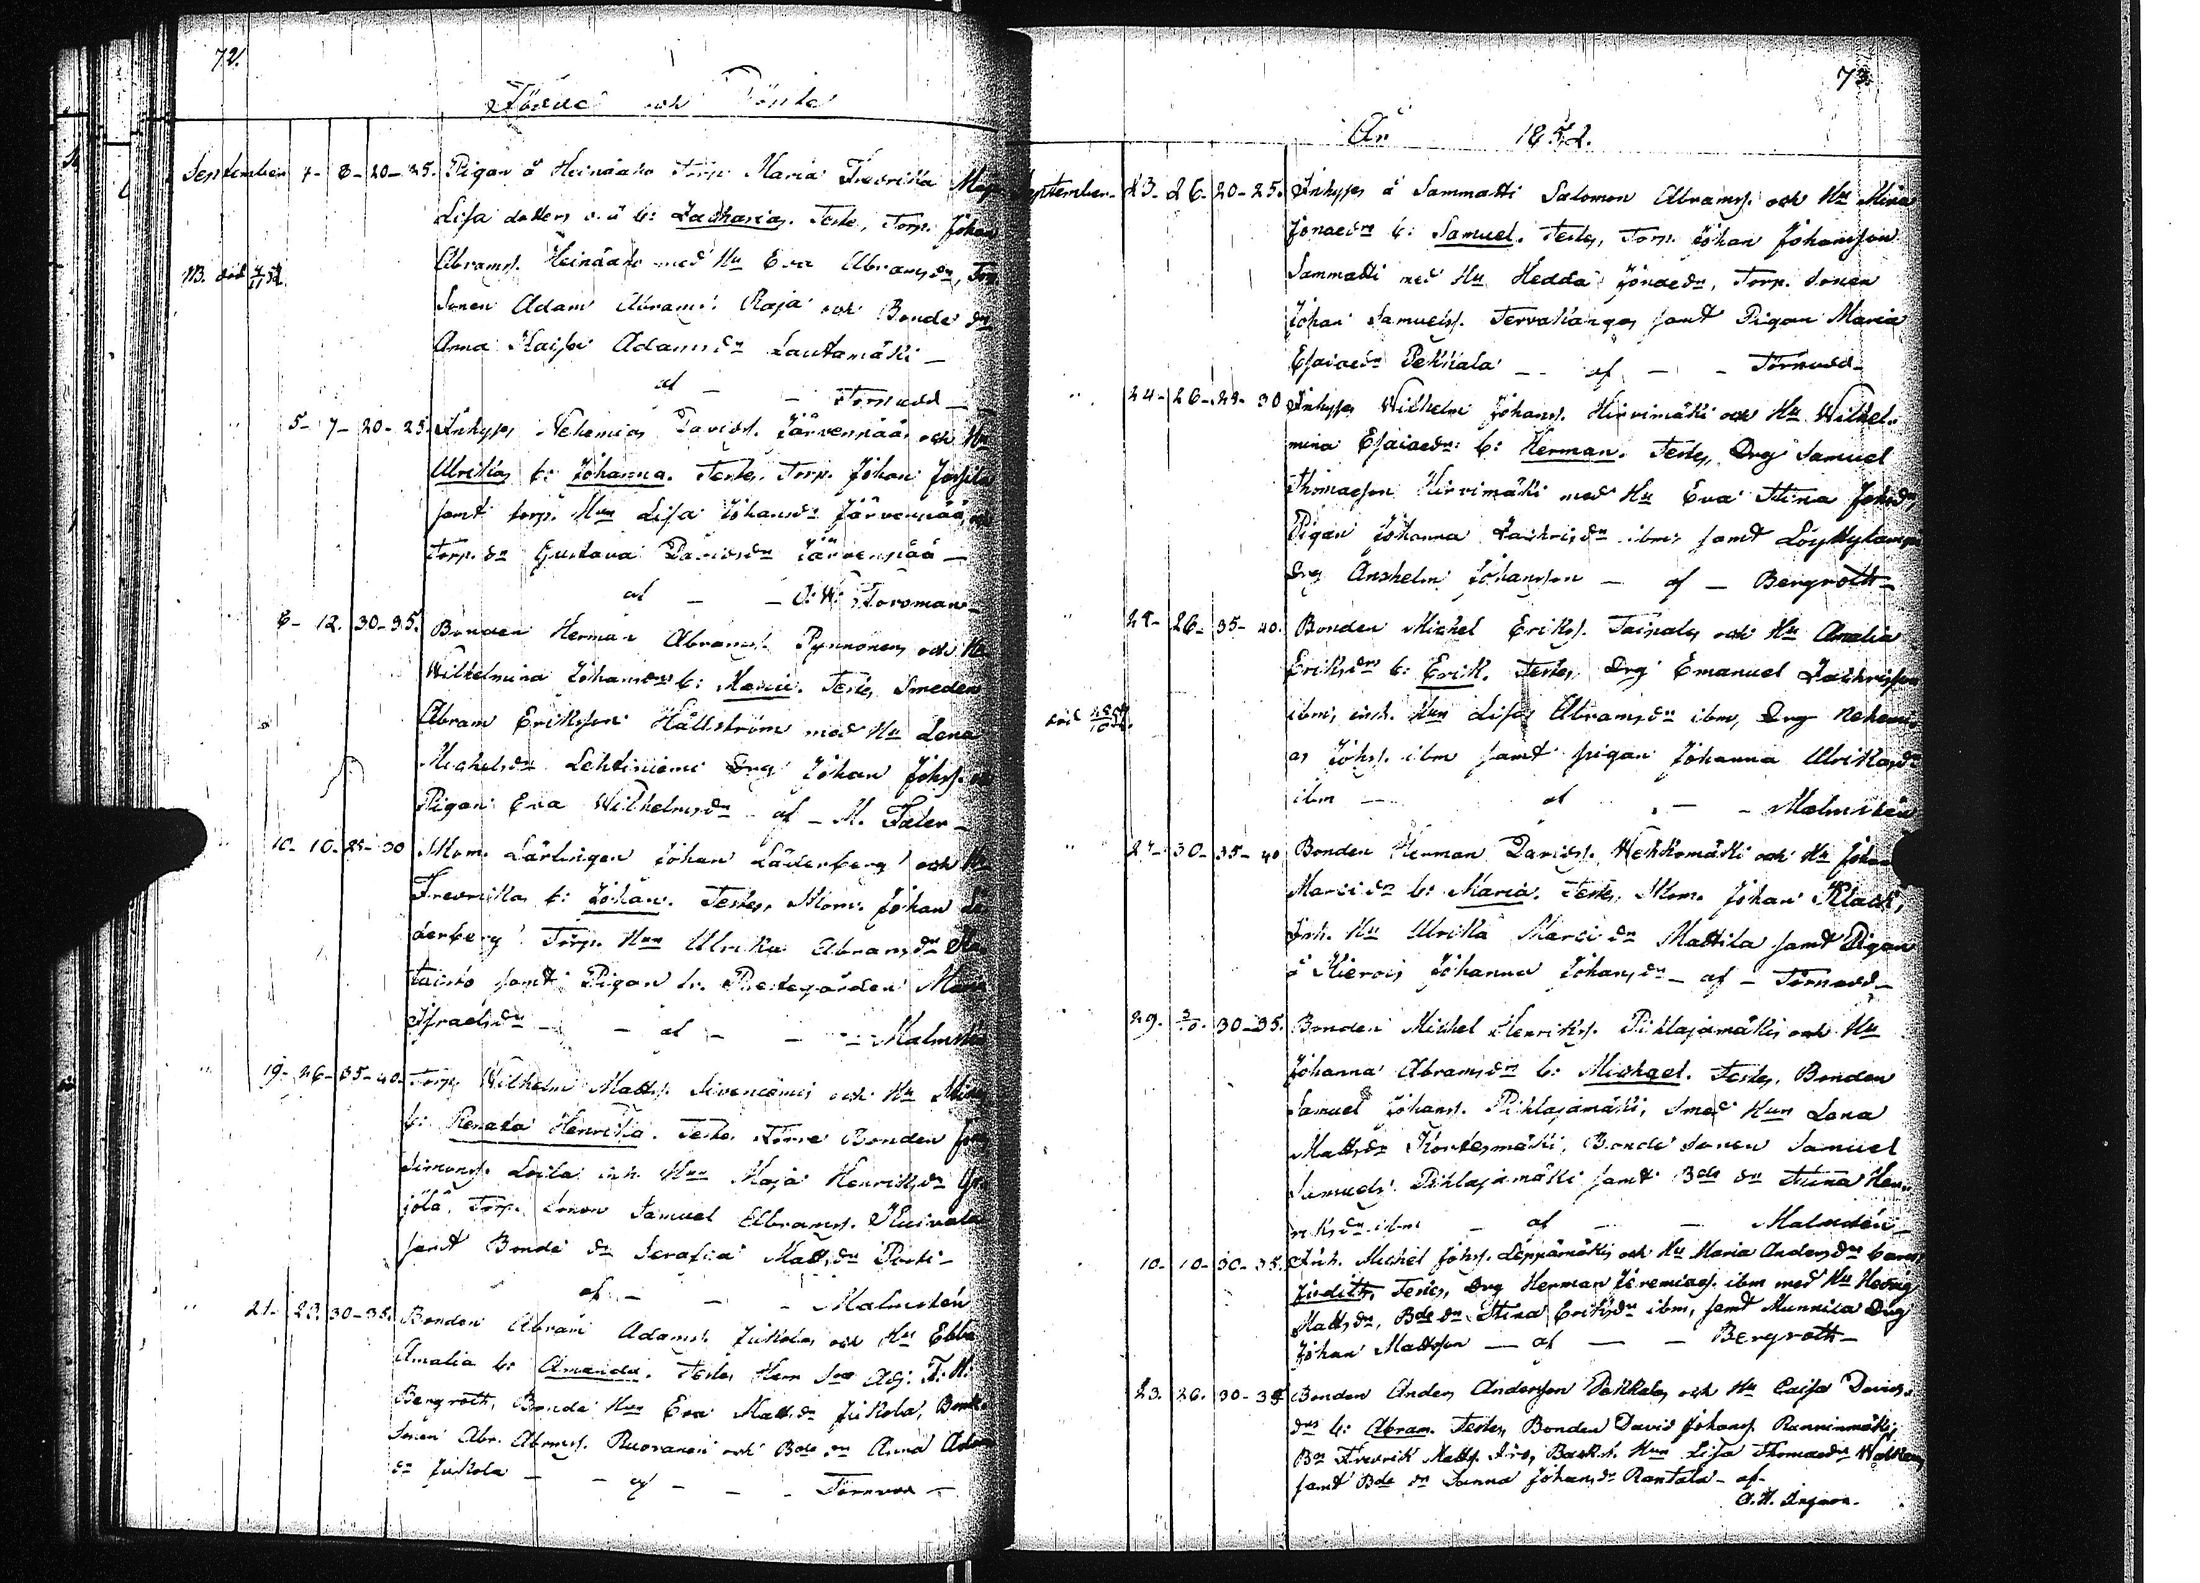 72.
Födde och Döpte
September 7- 8- 20-25. Pigan å Heinäaho Torp Maria Fredrika Maja
Lisa dotters o. ä. b: Zacharias. Teste, Torp. Johan
Abramss. Heinäaho med Hu Eva Abramsdr, Torp
NB. död
Sonen Adam Abrams. Raja och Bonde dr
Anna Kaisa Adamsdr Lautamäki —
af — — Törnudd —
5- 7- 20-25. Inhyses Nehemias Davids. Järvenpää och Hu
Ulrika b: Johanna. Testes, Torp. Johan
samt torp. Hun Lisa Johansdr Järvenpää, och
Torp. dr Gustava Davidsdr Järvenpää —
af — — O: W: Forsman —
8- 12. 30-35. Bonden Herman Abrams. Pynnönen och Hu
Wilhelmina Johansdr b: Maria. Testes, Smeden
Abram Eriksson Hällström med Hu Lena
Michelsdr Lehtiniemi Drg Johan Johss. o
Pigan Eva Wilhelmsdr - af - M. Faler —
" 10- 10- 25-30 Mom. Lärlingen Johan Läderberg och Hu
Fredrika b: Johan. Testes, Mom. Johan Lä-
derberg Torp. Hun Ulrika Abramsdr
samt Pigan fr. Prestegården Maria
Israelsdr — — af — — — Malmstén
" 19- 26- 35-40- Torp. Wilhelm Matts. Sivenniemi och Hu Mina
b: Renata Henrika. Testes, Förre Bonden
Simons. Loila inh. Hun Maja Henriksdr
jölä, Torp. Sonen Samuel Abrams. Kuivala
samt Bonde dr Serafia Mattsdr Porti —
af — — — Malmstén
" 21- 23. 30-35. Bonden Abram Adams. Jukola och Hu Ebba
Amalia b: Amanda. Testes Herr Adj: F. H.
Bergroth, Bonde Hun Eva Mattsdr Jukola, Bonde
Sonen Abr. Abrams. Ruoranen och Bde dr Anna Adams
dr Jukola — — af — — — Törnudd —
73.
År 1852.
September. 23- 26- 20-25. Inhyses å Sammatti Salomon Abramss. och Hu Mina
Jonaedr b: Samuel. Testes, Torp. Johan Johansson
Sammatti med Hu Hedda Jonaedr, Torp. Sonen
Johan Samuelss. Tervakangas samt Pigan Maria
Esaiaedr Pekkala — — af — — Törnudd —
" 24- 26- 25-30 Inhyses Wilhelm Johans. Hirvimäki och Hu Wilhel-
mina Esaiaedr: b: Herman. Testes, Drg Samuel
Thomasson Hirvimäki med Hu Eva Stina Johsdr,
Pigan Johanna Zachrisdr ibm; samt
Drg Anshelm Johansson — af — Bergroth —
" 24- 26- 35-40. Bonden Michel Eriks. Taipale och Hu Amalia
Eriksdr b: Erik. Testes, Drg Emanuel Zachrisson
död ibm; inh. Hun Lisa Abramsdr ibm, Drg Nehemi-
as Johss. ibm samt pigan Johanna Ulrikasdr
ibm — af — — Malmstén
" 27- 30- 35-40 Bonden Herman Davids. Wehkomäki och Hu Johan
Marcidr b: Maria. Testes, Mom. Johan Klack,
Inh. Hu Ulrika Marcidr Mattila samt Pigan
å Kierois Johanna Johansdr — af — Törnudd —
" 29. 3/10. 30-35. Bonden Michel Henriks. Pihlajamäki och Hu
Johanna Abramsdr b: Michael. Testes, Bonden
Samuel Johans. Pihlajamäki, Smed Hun Lena
Mattsdr Kortesmäki, Bonde Sonen Samuel
Samuels. Pihlajamäki samt Bde dr Stina Hen-
riksdr ibm — af — — Malmstén —
10- 10- 30-35. Inh. Michel Johss. Leppämäki och Hu Maria Andersdr barn
Judith, Testes, Drg Herman Jeremiass. ibm med Hu Hedvig
Mattsdr, Bde dr Stina Eriksdr ibm, samt Munnila Drg
Johan Mattsson — af — — Bergroth —
23. 26. 30-35 Bonden Anders Andersson Pekkala och Hu Caisa Davids-
dr b: Abram. Testes, Bonden David Johans. Ranninmäki,
Bn Fredrik Matts. Iro, Hun Lisa Thomaedr
samt Bde dr Sanna Johansdr Rantala — af —
A. H. Ingman.